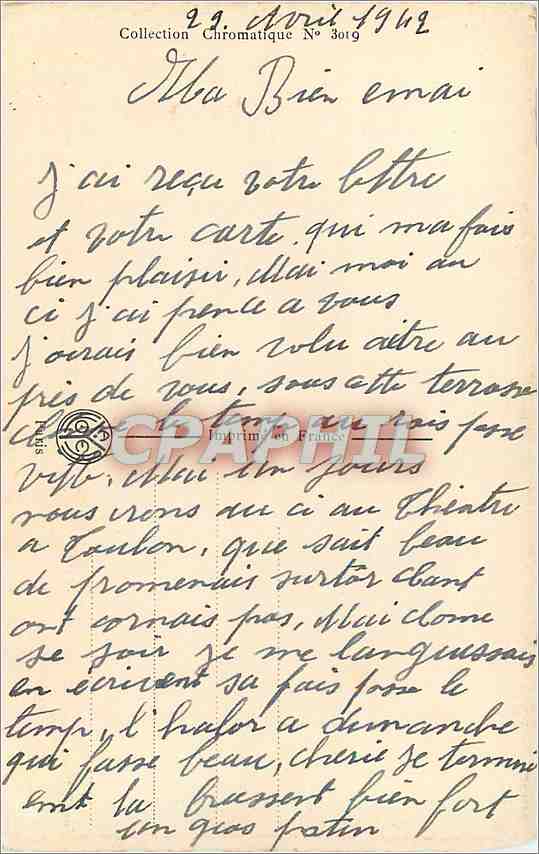 22 Avril 1942
Collection Chromatique Nº 3019
Ma Bien emai
j'ai reçu votre lettre
et votre carte, qui ma fais
bien plaisir, Mai moi au
ci j'ai pence a vous
j'orais bien volu aitre au
près de vous, sous cette terrasse
le temp au rais passe
PARIS
Imprimé en France
CPAPHIL
vite, Mai un jours
nous irons au ci au théâtre
a Toulon, que sait beau
de promenais surtor
ont cornais pas, Mai
se soir je me languissais
en écrivent sa fais passe le
temp, l'halor a dumanche
qui fasse beau, cherie je termine
ent la brassent bien fort
un gros patin